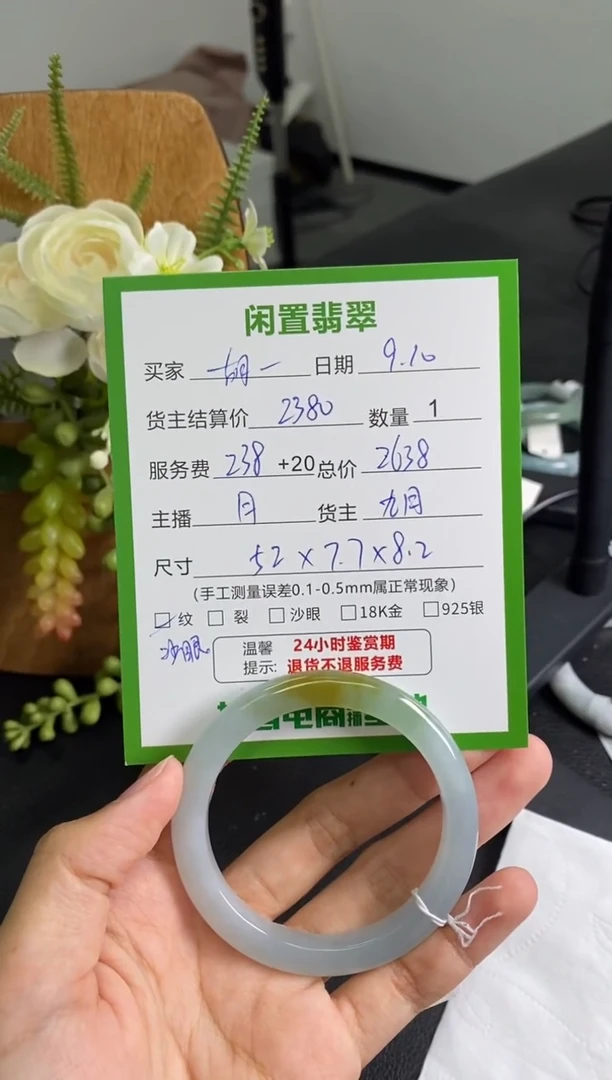 闲置翡翠
买家 胡一 日期 9.10
货主结算价 2380 数量 1
服务费 238 +20 总价 2638
主播 月 货主 九月
尺寸 52×7.7×8.2
(手工测量误差0.1-0.5mm属正常现象)
☑纹 □裂 □沙眼 □18K金 □925银
沙眼
温馨提示: 24小时鉴赏期
退货不退服务费
电商播